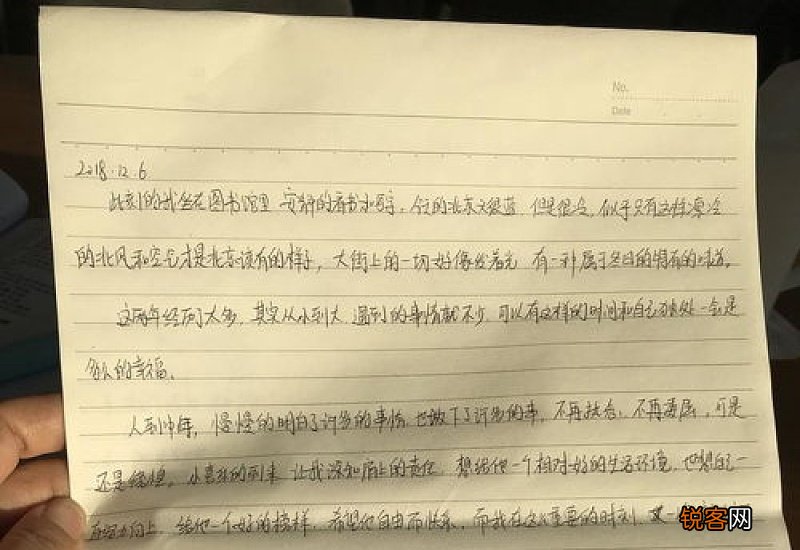 No.
Date
2018.12.6
此刻的我坐在图书馆里 安静的看书和写字，今天的北京天很蓝，但是很冷，似乎只有这样凛冷
的北风和空气才是北京该有的样子，大街上的一切好像发着光 有一种属于冬日的特有的味道。
这两年经历太多，其实从小到大 遇到的事情就不少 可以有这样的时间和自己独处一会是
多么的幸福。
人到中年，慢慢的明白了许多的事情 也放下了许多的事，不再执着，不再委屈，可是
还是彷徨。小 的到来 让我深知肩上的责任 想给他一个相对好的生活环境，也想自己一
努力向上 给他一个好的榜样，希望他自由而快乐，而我在这么重要的时刻，
锐客网